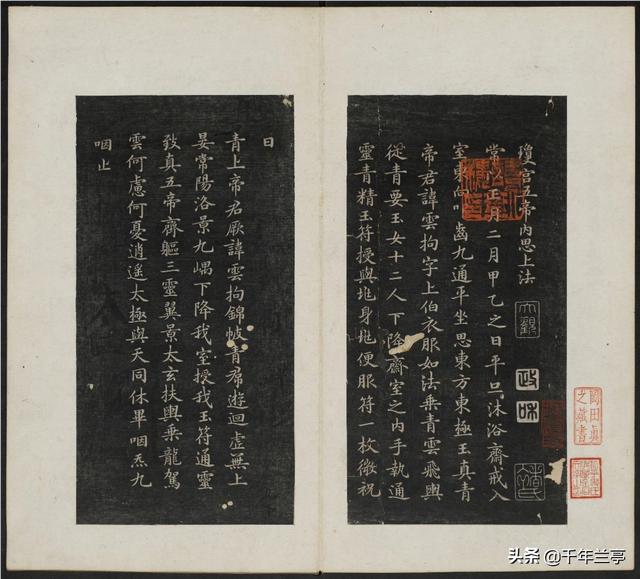 瓊宮五帝內思上法
常以正月二月甲乙之日平旦沐浴齋戒入
室東向叩齒九通平坐思東方東極玉真青
帝君諱雲拘字上伯衣服如法乘青雲飛輿
從青要玉女十二人下降齋室之內手執通
靈青精玉符授與地身地便服符一枚微祝
曰
青上帝君厥諱雲拘錦帔青帬遊迴虛無上
晏常陽洛景九嵎下降我室授我玉符通靈
致真五帝齊軀三靈翼景太玄扶輿乘龍駕
雲何慮何憂逍遥太極與天同休畢咽炁九
咽止
大觀
政和
園田眞
之蔵書
头条 @千年兰亭